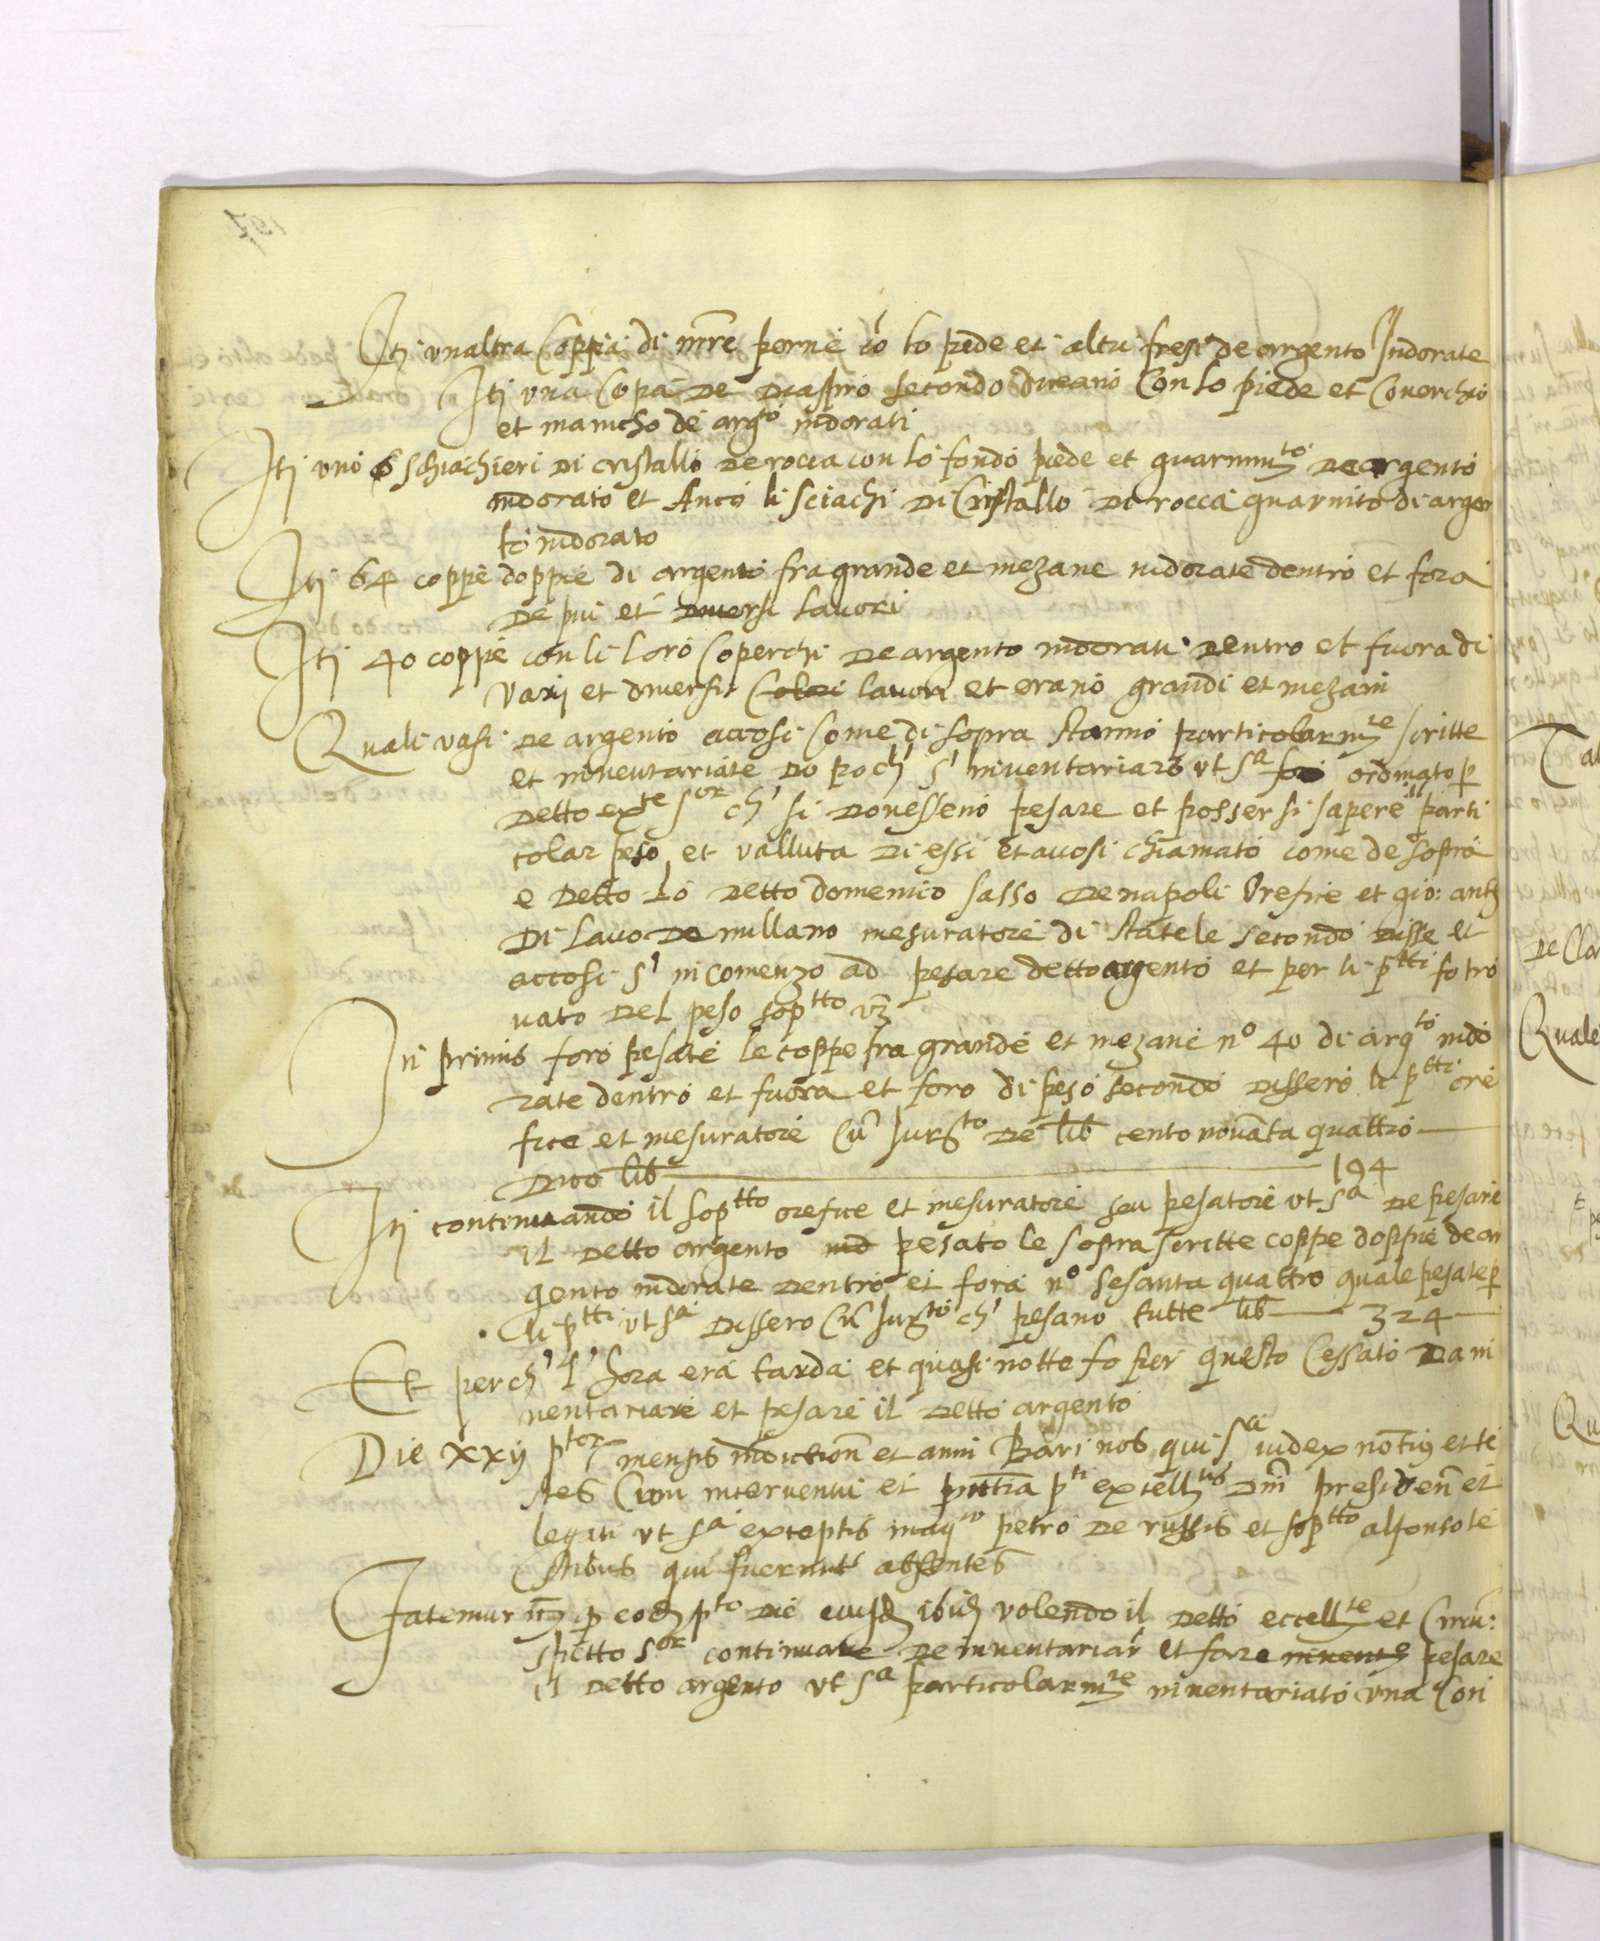 Itj unaltra Coppa di mre perne cō lo pede et altri fresi de argento Indorate
Itj una Copa de diaspro secondo diceano Con lo piede et Coverchio
et manicho de argto indorati
Itj uno schiachieri di cristallo de rocca con lo fondo piede et guarnimto de argento
indorato et Anco li sciachi di Cristallo di rocca guarnito di argen
to indorato
Itj 64 coppe doppie di argento fra grande et mezane indorate dentro et fora
de piu et diversi lavori
Itj 40 coppe con li loro Coperchi de argento indorati dentro et fuora di
varij et diversi Colori lavori et erano grandi et mezani
Quali vasi de argento accosi Come di sopra stanno particolarmte scritte
et inventariate do poch' s' inventariaro ut sa foi ordinato p
detto exte sor ch' si dovesseno pesare et possersi sapere il parti
colar peso et valluta di essi et accosi chiamato come de sopra
e detto lo detto domenico sasso de napoli Orefice et gio: antj
di lavo de millano mesuratore di statele secondo disse et
accosi s' incomenzo ad pesare detto argento et per li ptti fo tro
vato del peso soptto vz
In primis foro pesate le coppe fra grande et mezane no 40 di argto indo
rate dentro et fuora et foro di peso secondo dissero li ptti ore
fice et mesuratore Cū Jurto de lib cento novāta quattro
dico lib 194
Itj continuando il soptto orefice et mesuratore seu pesatore ut sa de pesare
il detto argento ind pesato le soprascritte coppe doppie de ar
gento indorate dentro et fora no sesanta quattro quale pesate p
li ptti ut sa dissero Cū Jurto ch' pesano tutte lib 324
Et perch' l' hora era tarda et quasi notte fo per questo Cessato da in
ventariare et pesare il detto argento
Die xxij ptor mensis indiction et anni Bari nos qui sa iudex notius et te
stes Cum interventu et pnttia pti excelltis dni presiden et
legati ut sa exceptis magco petro de russis et soptto alfonso te
stibus qui fuerunt absentes
Fatemur p eod pto die eiusd ibid volendo il detto eccellte et Circū:
spetto sor continuare de inventariar et fare invent pesare
il detto argento ut sa particolarmte inventariato una Con